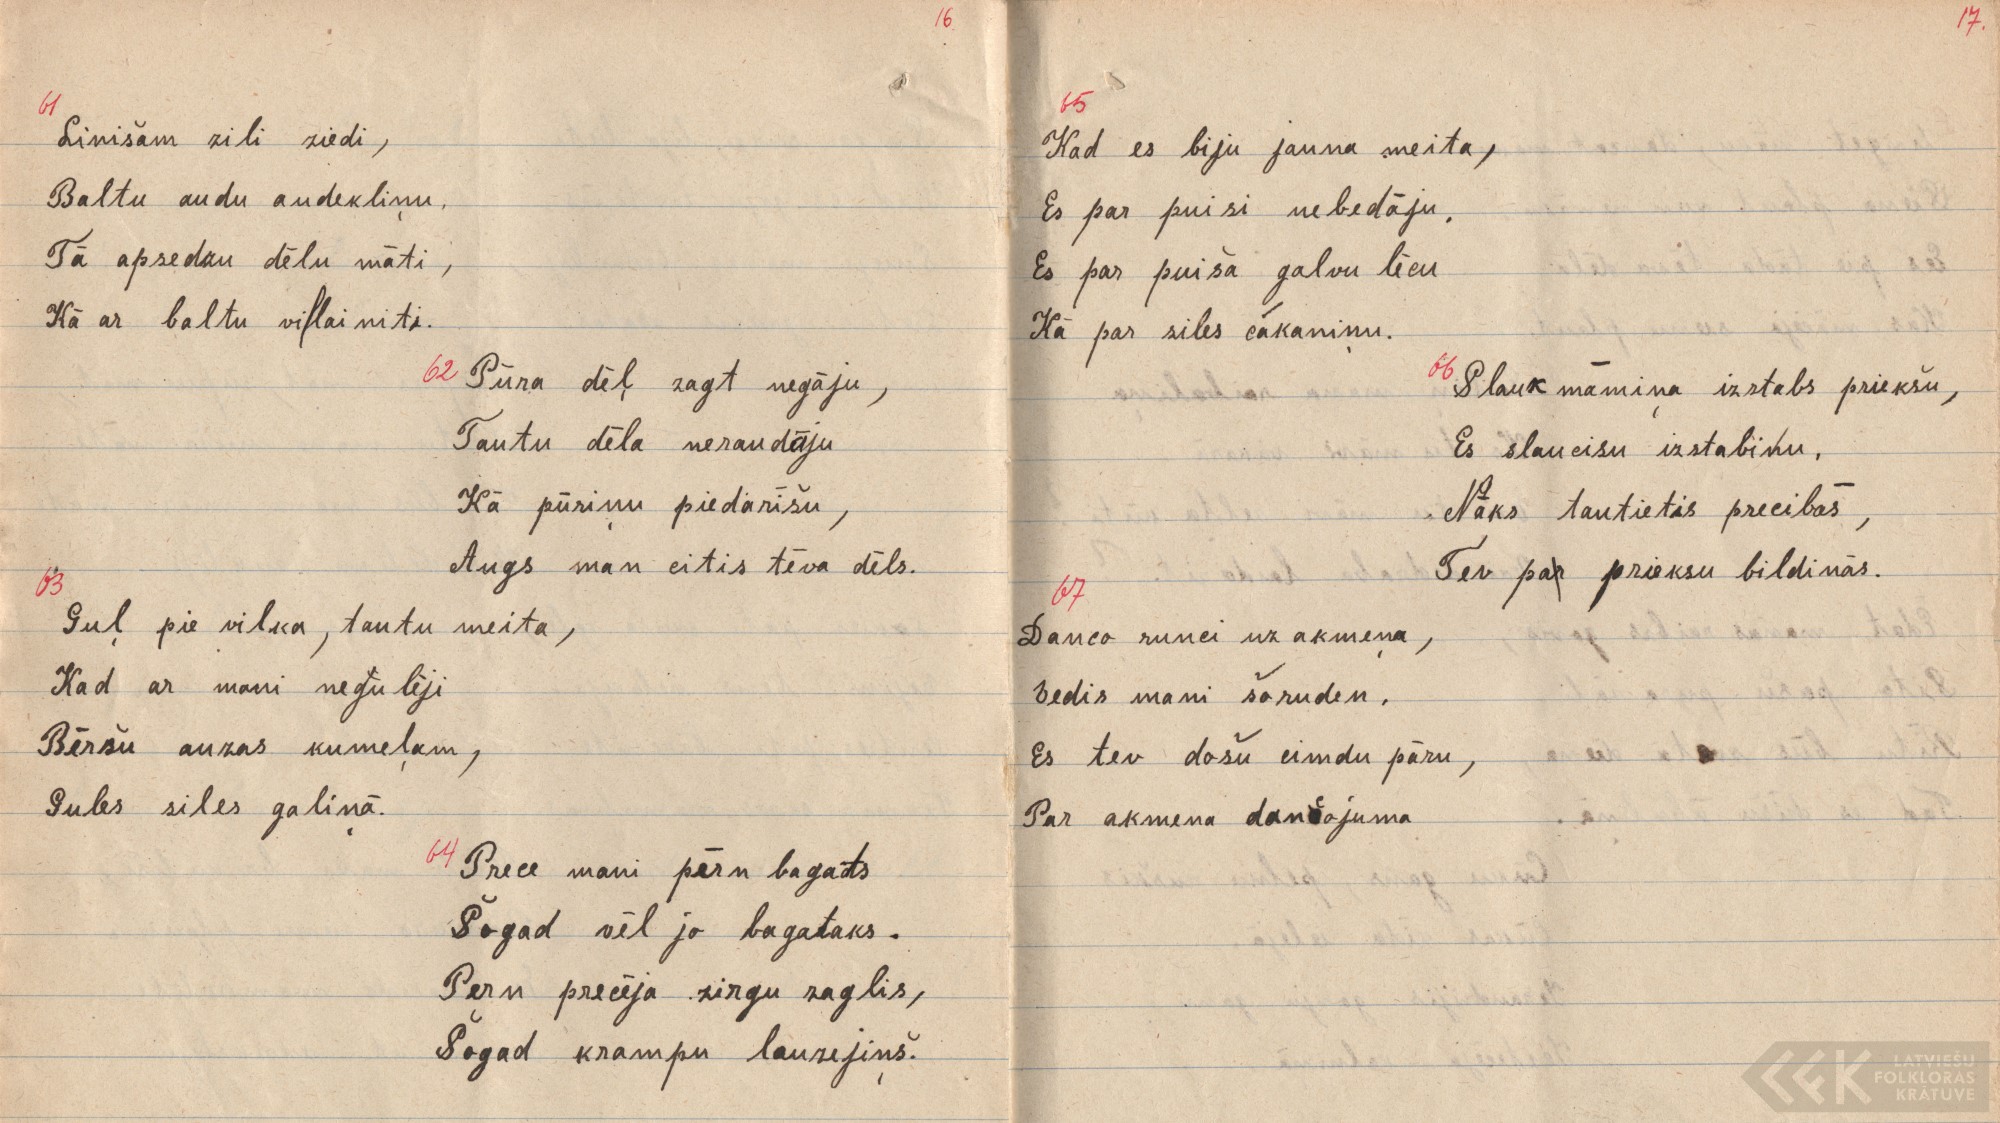 16
61
Linišam zili ziedi,
Baltu audu audekliņu,
Tā apsedzu dēlu māti,
Kā ar baltu villainiti.
62
Pūra dēļ zagt negāju,
Tautu dēla neraudāju
Kā pūriņu piedarīšu,
Augs man citis tēva dēls.
63
Guļ pie vilka, tautu meita,
Kad ar mani negulēji
Bēršu auzas kumeļam,
Gules siles galiņā.
64
Prece mani pērn bagāts
Šogad vēl jo bagataks.
Pērn precēja zirgu zaglis,
Šogad krampu lauzejiņš.
17.
65
Kad es biju jauna meita,
Es par puisi nebedāju.
Es par puiša galvu lēcu
Kā par siles cākaniņu.
66
Slauk māmiņa izstabs priekšu,
Es slaucisu izstabiņu.
Nāks tautietis precibās,
Tev par prieksu bildinās.
67
Danco runci uz akmeņa,
Vedis mani šoruden.
Es tev došu cimdu pāru,
Par akmena dančojuma
LATVIEŠU
FOLKLORAS
KRĀTUVE